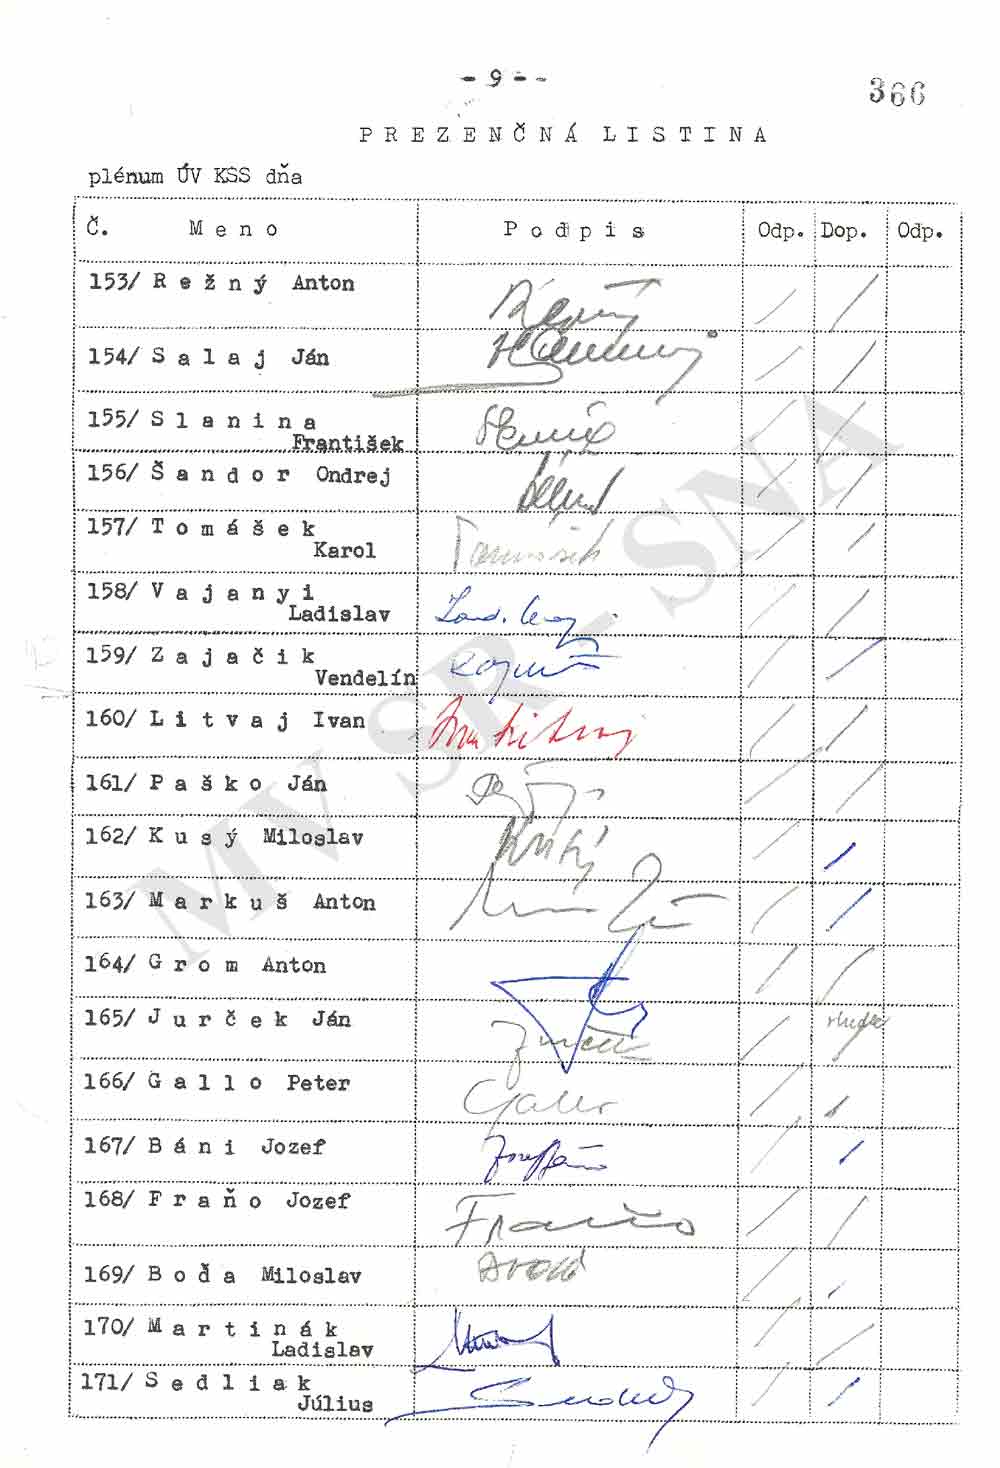 - 9 - -
366
PREZENČNÁ LISTINA
plénum ÚV KSS dňa
Č. Meno Podpis Odp. Dop. Odp.
153/ Režný Anton
154/ Salaj Ján
155/ Slanina
František
156/ Šandor Ondrej
157/ Tomášek
Karol
158/ Vajanyi
Ladislav
159/ Zajačik
Vendelín
160/ Litvaj Ivan Ivan Litvaj
161/ Paško Ján
162/ Kusý Miloslav Kusý
163/ Markuš Anton
164/ Grom Anton
165/ Jurček Ján
166/ Gallo Peter Gallo
167/ Báni Jozef
168/ Fraňo Jozef Fraňo
169/ Boďa Miloslav
170/ Martinák
Ladislav
171/ Sedliak
Július
MV SR - SNA